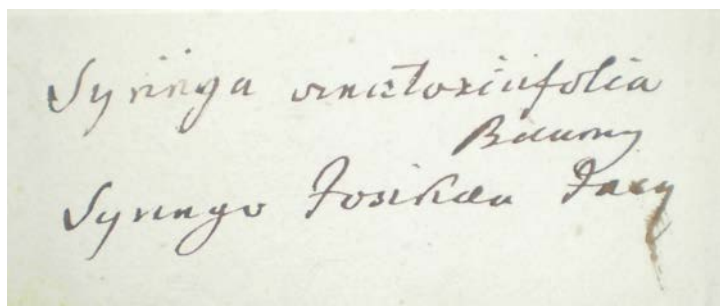 Syringa vincetoxicifolia
Baumg
Syringa Josikaea Jacq